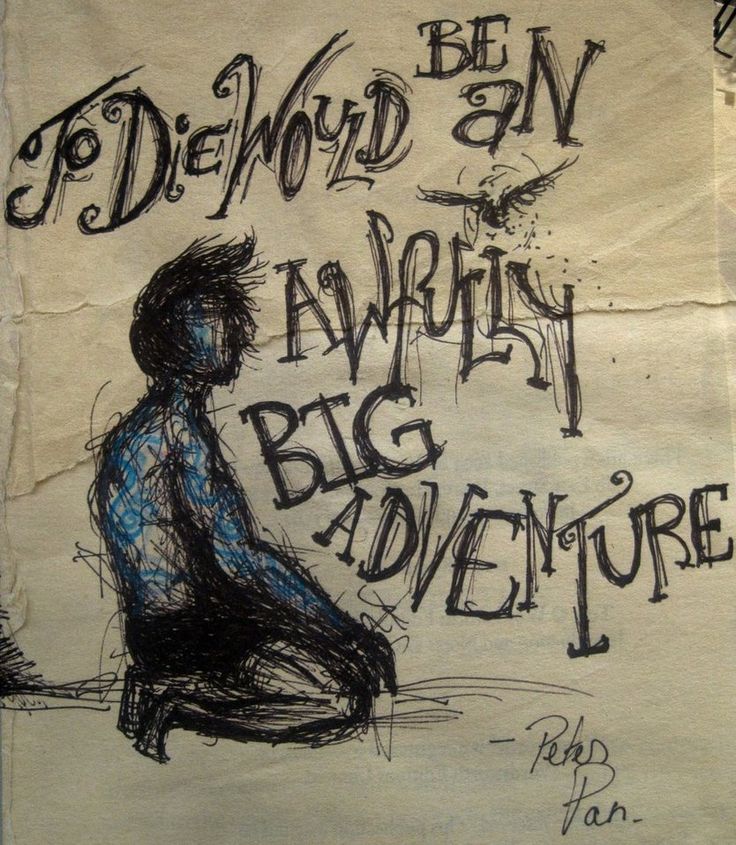 To Die Would BE
aN
AWFULLY
BIG
ADVENTURE
- Peter
Pan.